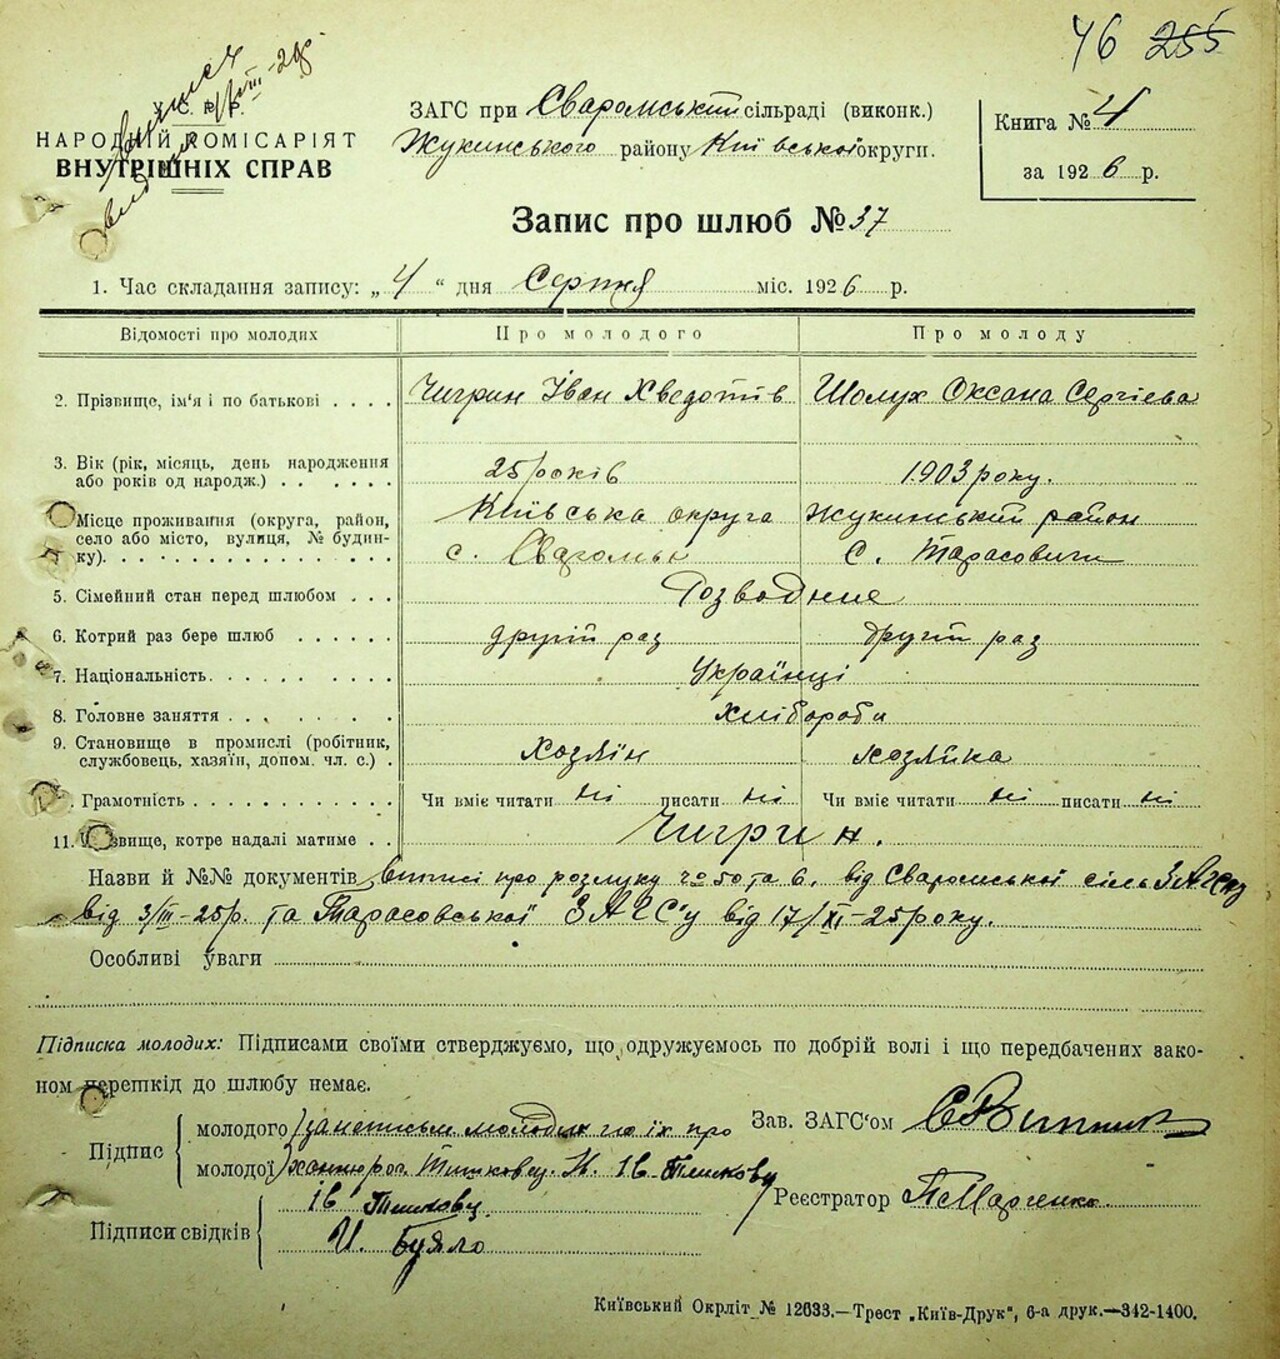 46 255
У. С. Р. Р.
НАРОДНІЙ КОМІСАРІЯТ
ВНУТРІШНІХ СПРАВ
ЗАГС при Сваромський сільраді (виконк.)
Жукинського району Київської округи.
Книга № 4
за 1926 р.
Запис про шлюб № 37
1. Час складання запису: „4“ дня Серпня міс. 1926 р.
Відомості про молодих Про молодого Про молоду
2. Прізвище, ім'я і по батькові . . . . Чигрин Іван Хведотів Шолух Оксана Сергієва
3. Вік (рік, місяць, день народження
або років од народж.) . . . . . . 25 років 1903 року.
Місце проживання (округа, район, Київська округа Жукинський район
село або місто, вулиця, № будин-
ку). . . . . . . . . . . . . . с. Сваромьє С. Тарасовичи
5. Сімейний стан перед шлюбом . . . Розводние
6. Котрий раз бере шлюб . . . . . . другій раз другій раз
7. Національність. . . . . . . . . . Українці
8. Головне заняття . . . . . . . . Хлібороби
9. Становище в промислі (робітник,
службовець, хазяїн, допом. чл. с.) . Хозяїн хозяйка
Грамотність . . . . . . . . . . . . Чи вміє читати ні писати ні Чи вміє читати ні писати ні
11. Прізвище, котре надалі матиме . . Чигрин.
Назви й №№ документів витисі про розлуку чо 50 та 6. від Сваромської сіль ЗАГСу
від 3/III-25 р. та Тарасовської ЗАГС'у від 17/XI-25 року.
Особливі уваги
Підписка молодих: Підписами своїми стверджуємо, що одружуємось по добрій волі і що передбачених зако-
ном перешкід до шлюбу немає.
Підпис
молодого за неписьм молодих по їх про
молодої Тишковец. Ів. Тишковец
Зав. ЗАГС'ом
Реєстратор Марченко
Підписи свідків
Ів Тишковец.
И. Буяло
Київський Окрліт № 12633.—Трест „Київ-Друк“, 6-а друк.—342-1400.